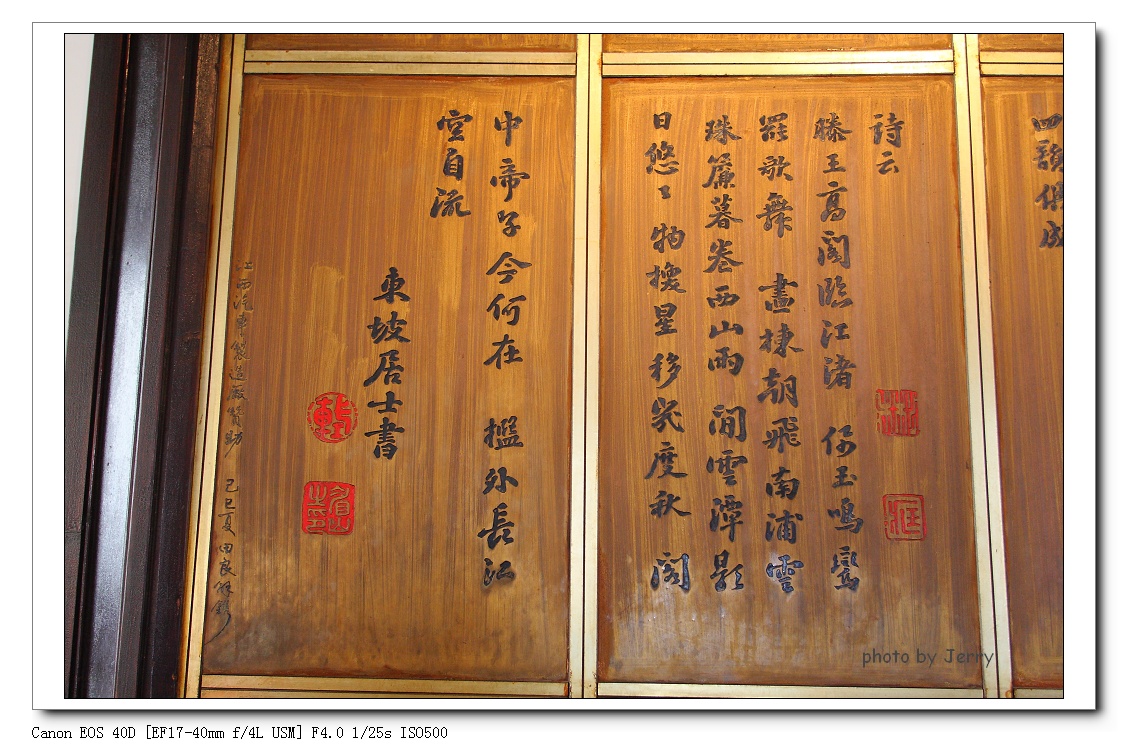 四韻俱成
詩云
滕王高閣臨江渚 佩玉鳴鸞
罷歌舞 畫棟朝飛南浦雲
珠簾暮卷西山雨 閒雲潭影
日悠〻 物換星移幾度秋 閣
中帝子今何在 檻外長江
空自流
東坡居士書
江西汽車製造廠贊助
己巳夏 田良
photo by Jerry
Canon EOS 40D [EF17-40mm f/4L USM] F4.0 1/25s ISO500